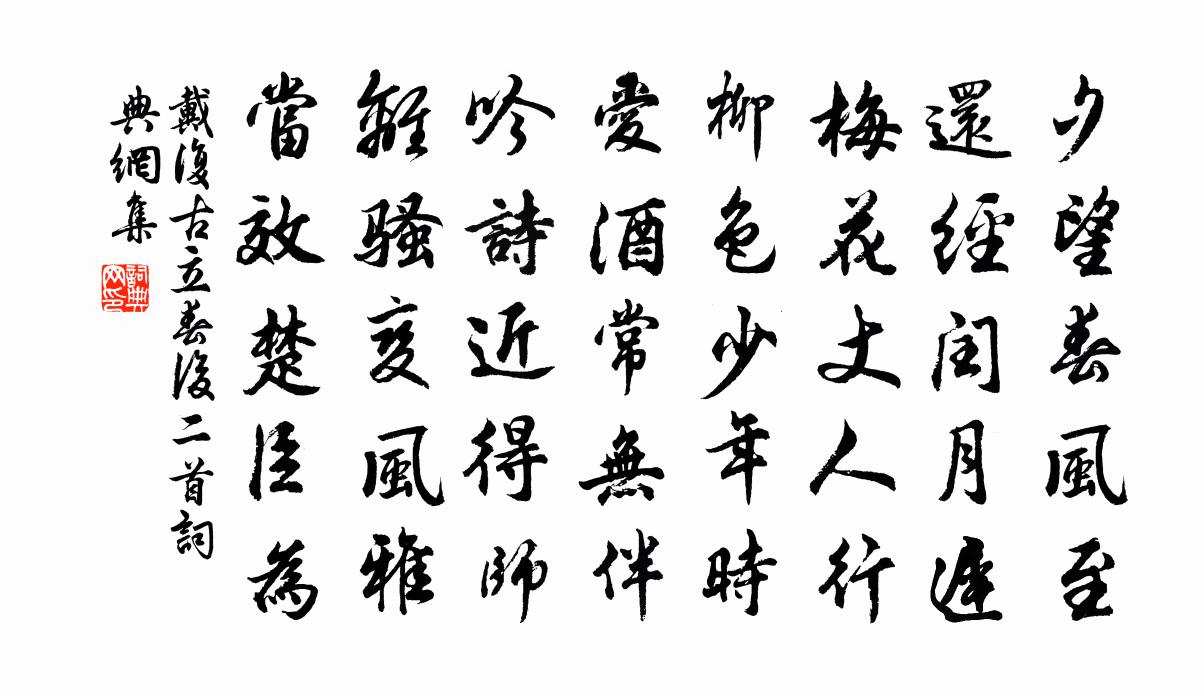 夕望春風至
還經閏月遲
梅花丈人行
柳色少年時
愛酒常無伴
吟詩近得師
離騷變風雅
當效楚臣為
戴復古立春後二首詞
典網集
詞典
网印